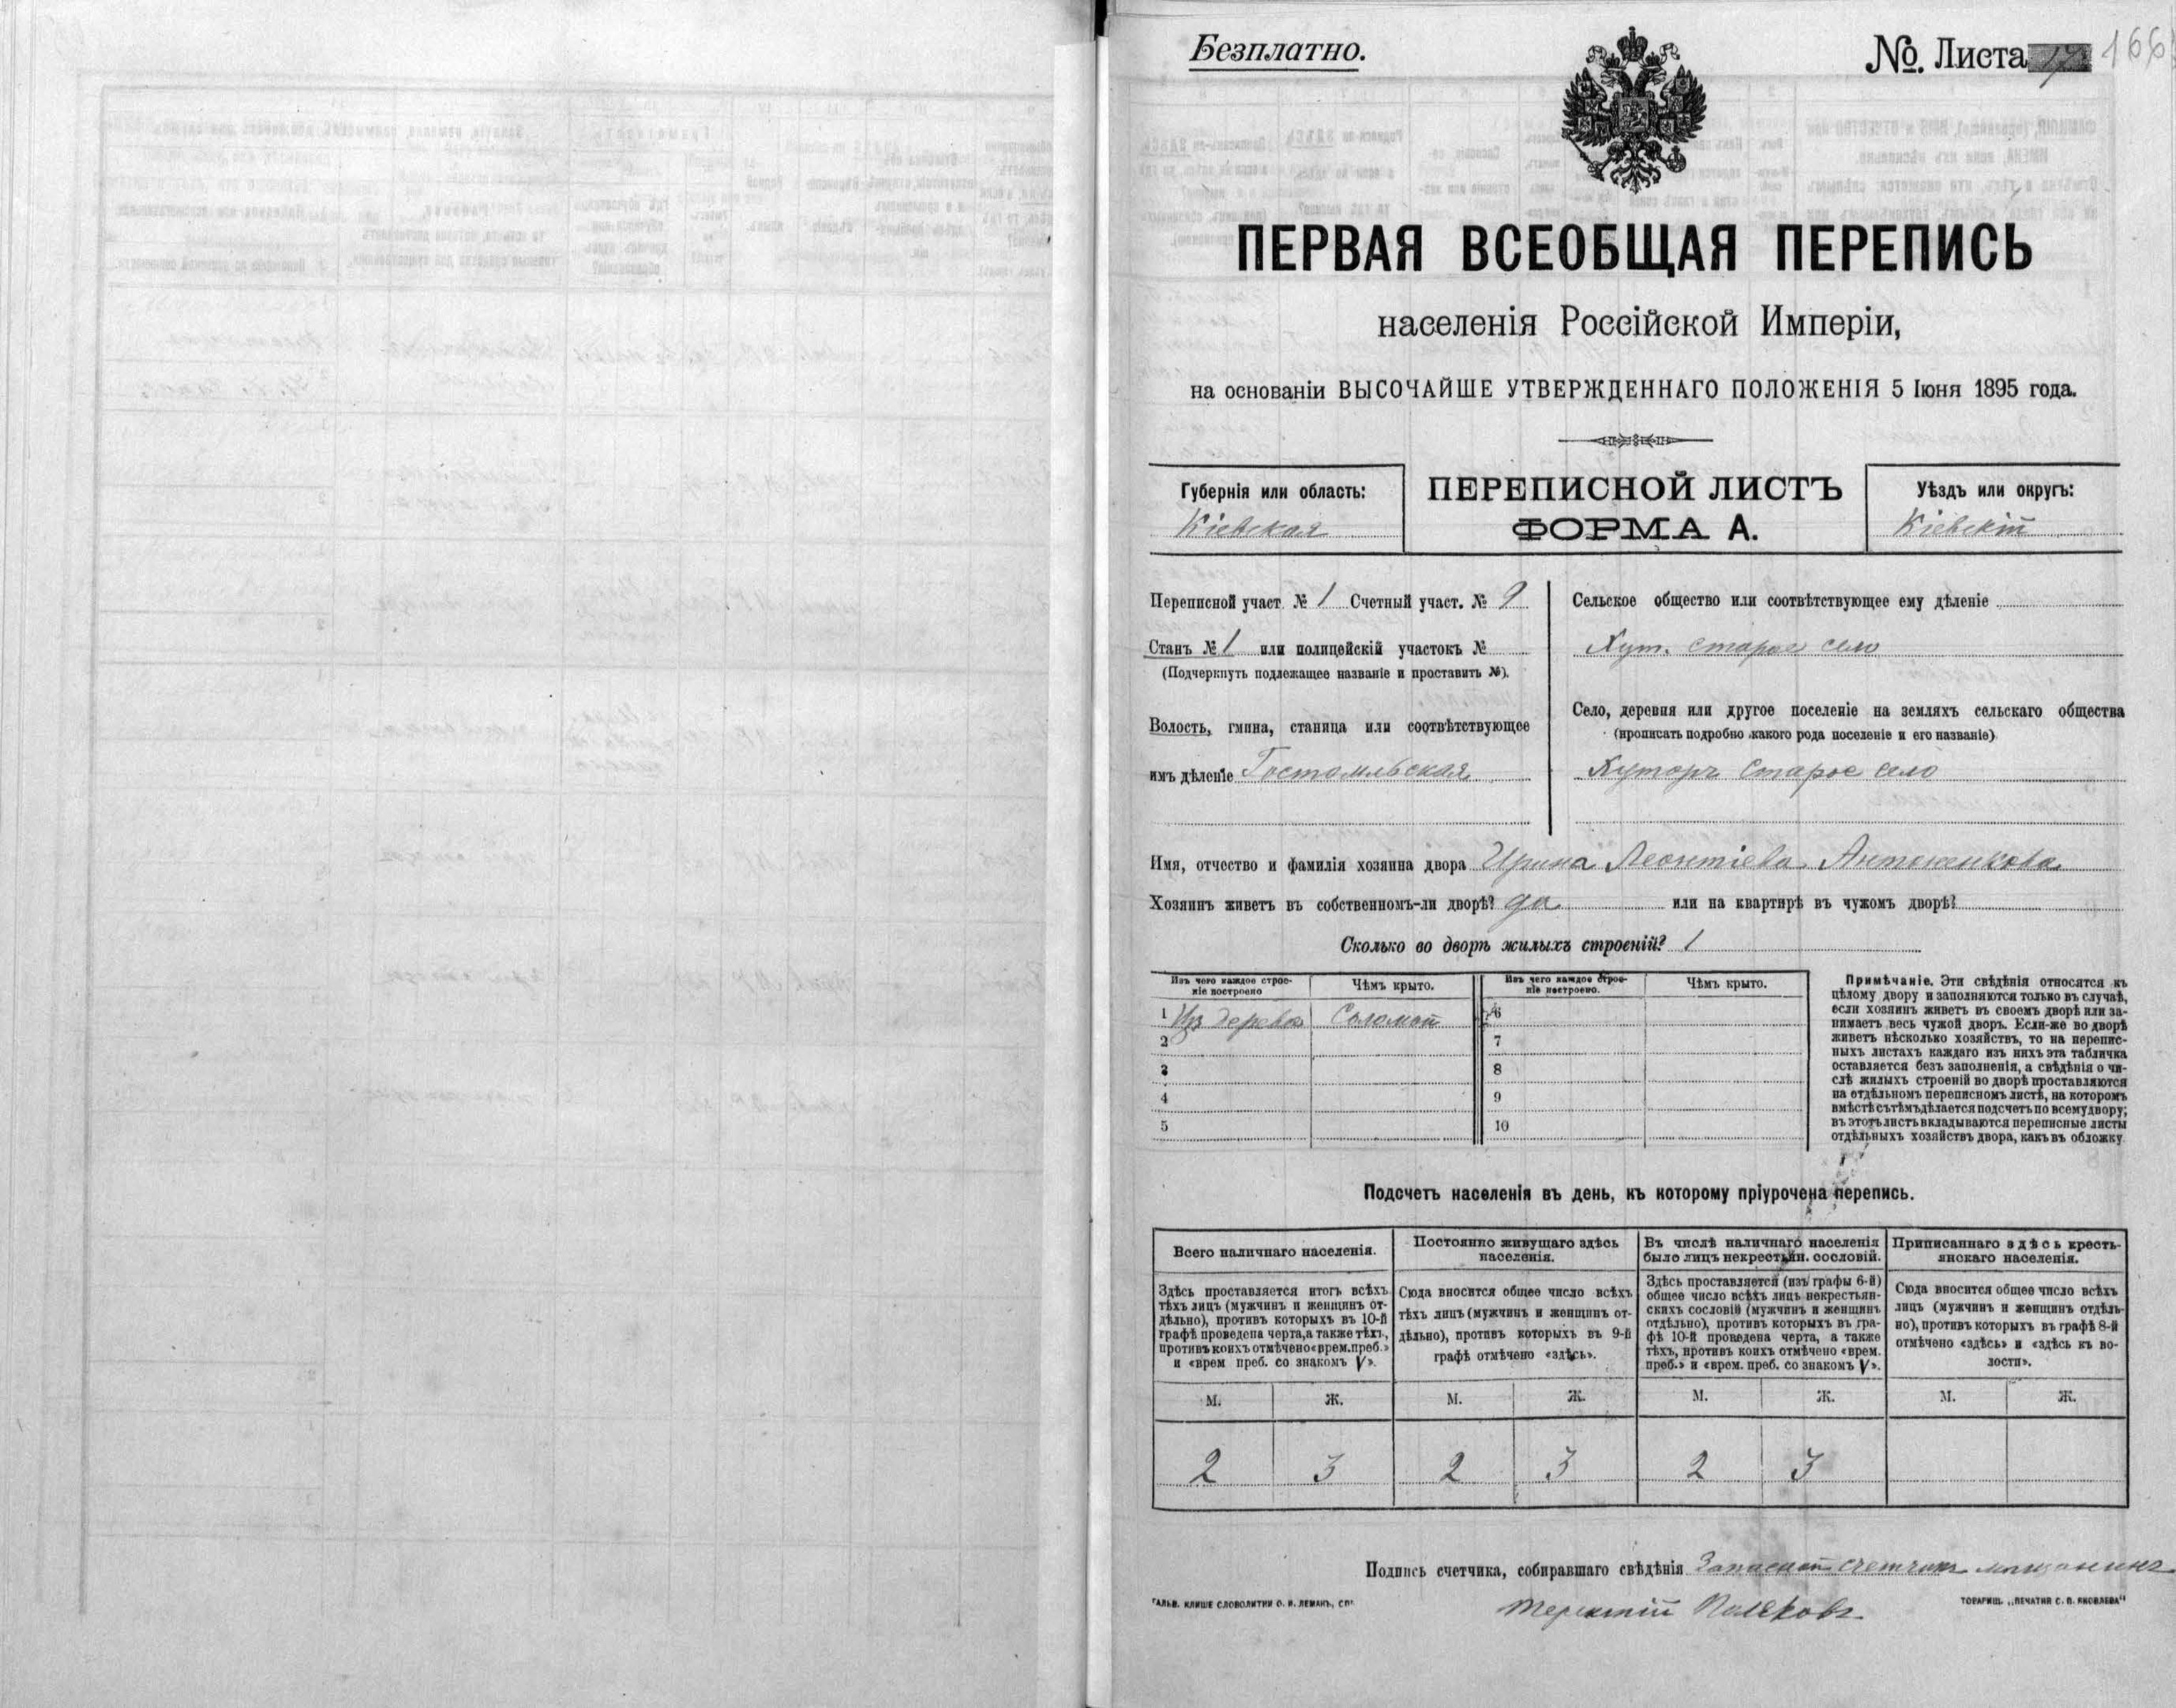 Безплатно.
№. Листа 17 166
ПЕРВАЯ ВСЕОБЩАЯ ПЕРЕПИСЬ
населенія Россійской Имперіи,
на основаніи ВЫСОЧАЙШЕ УТВЕРЖДЕННАГО ПОЛОЖЕНІЯ 5 Іюня 1895 года.
Губернія или область:
Кіевская
ПЕРЕПИСНОЙ ЛИСТЪ
ФОРМА А.
Уѣздъ или округъ:
Кіевскій
Переписной участ. № 1 Счетный участ. № 9
Станъ № 1 или полицейскій участокъ №
(Подчеркнуть подлежащее названіе и проставить №).
Волость, гмина, станица или соотвѣтствующее
имъ дѣленіе Гостомльская
Сельское общество или соотвѣтствующее ему дѣленіе
Хут. Старое село
Село, деревня или другое поселеніе на земляхъ сельскаго общества
(прописать подробно какого рода поселеніе и его названіе)
Хуторъ Старое село
Имя, отчество и фамилія хозяина двора Ирина Леонтіева Антоненкова
Хозяинъ живетъ въ собственномъ-ли дворѣ? да или на квартирѣ въ чужомъ дворѣ?
Сколько во дворѣ жилыхъ строеній? 1
Изъ чего каждое строе-
ніе построено
Чѣмъ крыто.
Изъ чего каждое строе-
ніе построено.
Чѣмъ крыто.
1 Из дерева Соломой 6
2 7
3 8
4 9
5 10
Примѣчаніе. Эти свѣдѣнія относятся къ
цѣлому двору и заполняются только въ случаѣ,
если хозяинъ живетъ въ своемъ дворѣ или за-
нимаетъ весь чужой дворъ. Если-же во дворѣ
живетъ нѣсколько хозяйствъ, то на перепис-
ныхъ листахъ каждаго изъ нихъ эта табличка
оставляется безъ заполненія, а свѣдѣнія о чи-
слѣ жилыхъ строеній во дворѣ проставляются
на отдѣльномъ переписномъ листѣ, на которомъ
вмѣстѣ съ тѣмъ дѣлается подсчетъ по всему двору;
въ этотъ листъ вкладываются переписные листы
отдѣльныхъ хозяйствъ двора, какъ въ обложку
Подсчетъ населенія въ день, къ которому пріурочена перепись.
Всего наличнаго населенія.
Здѣсь проставляется итогъ всѣхъ
тѣхъ лицъ (мужчинъ и женщинъ от-
дѣльно), противъ которыхъ въ 10-й
графѣ проведена черта, а также тѣхъ,
противъ коихъ отмѣчено «врем. преб.»
и «врем преб. со знакомъ V».
Постоянно живущаго здѣсь
населенія.
Сюда вносится общее число всѣхъ
тѣхъ лицъ (мужчинъ и женщинъ от-
дѣльно), противъ которыхъ въ 9-й
графѣ отмѣчено «здѣсь».
Въ числѣ наличнаго населенія
было лицъ некрестьян. сословій.
Здѣсь проставляется (изъ графы 6-й)
общее число всѣхъ лицъ некрестьян-
скихъ сословій (мужчинъ и женщинъ
отдѣльно), противъ которыхъ въ гра-
фѣ 10-й проведена черта, а также
тѣхъ, противъ коихъ отмѣчено «врем.
преб.» и «врем. преб. со знакомъ V».
Приписаннаго здѣсь кресть-
янскаго населенія.
Сюда вносится общее число всѣхъ
лицъ (мужчинъ и женщинъ отдѣль-
но), противъ которыхъ въ графѣ 8-й
отмѣчено «здѣсь» и «здѣсь въ во-
лости».
М. Ж. М. Ж. М. Ж. М. Ж.
2 3 2 3 2 3
Подпись счетчика, собиравшаго свѣдѣнія Запасной счетчик мещанинъ
Терентій Поляковъ
ГАЛЬВ. КЛИШЕ СЛОВОЛИТНИ О. И. ЛЕМАНЪ, СПБ
ТОВАРИЩ. „ПЕЧАТНЯ С. П. ЯКОВЛЕВА"